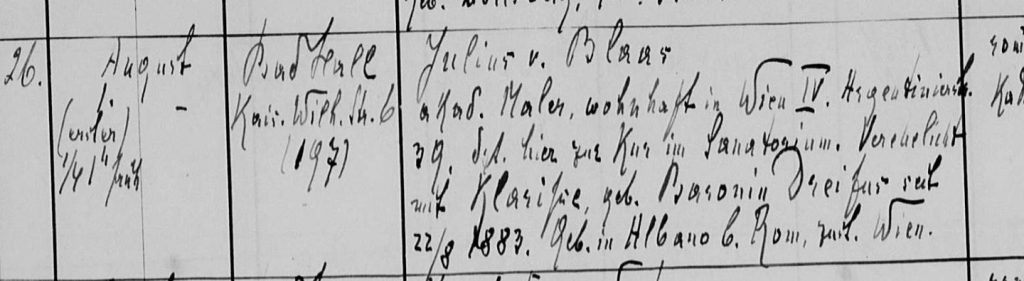 26.
August
(erster)
1/4 1 h früh
Bad Hall
Kais. Wilh. Str. 6
(197)
Julius v. Blaas
akad. Maler, wohnhaft in Wien IV. Argentinierstr.
39, dzt. hier zur Kur im Sanatorium. Verehelicht
mit Klarisse, geb. Baronin Dreifus seit
22/8 1883. Geb. in Albano b. Rom, zust. Wien.